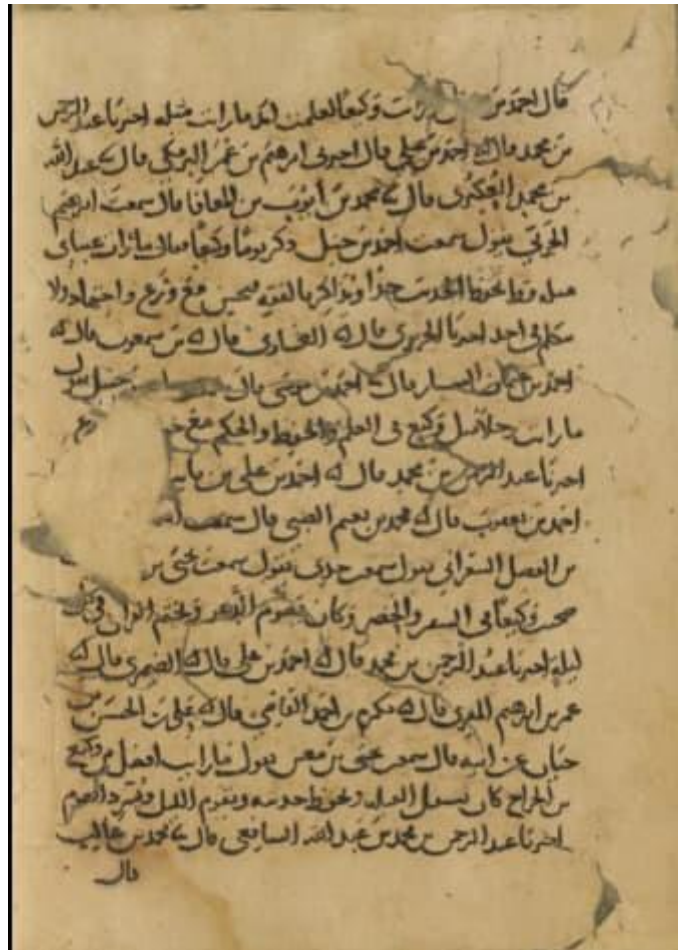 قال احمد بن رايت وكيعا لعلمت انك ما رايت مثله اخبرنا عبد الرحمن
بن محمد قال احمد بن علي قال اخبرني ابرهيم بن عمر البرمكي قال عبد الله
بن محمد العكبري قال محمد بن أيوب بن المعافا قال سمعت ابرهيم
الحربي يقول سمعت احمد بن حنبل ذكر يوما وكيعا فقال ما رات عيناي
مثله قط يحفظ الحديث جدا ويذاكر بالفقه فيحسن مع ورع واجتهاد ولا
يتكلم في احد اخبرنا الحريري قال العشاري قال بن سمعون قال
احمد بن قال احمد بن قال حنبل يقول
ما رايت رجلا مثل وكيع في العلم والحفظ والحكم مع
اخبرنا عبد الرحمن بن محمد قال احمد بن علي بن ثابت
احمد بن يعقوب قال محمد بن نعيم الضبي قال سمعت
بن الفضل الشعراني يقول سمعت جدي يقول سمعت يحيى بن
صحبت وكيعا في السفر والحضر وكان يصوم الدهر ويختم القران في كل
ليلة اخبرنا عبد الرحمن بن محمد قال احمد بن علي قال الصيمري قال
عمر بن ابرهيم المقرئ قال مكرم بن احمد القاضي قال علي بن الحسين بن
حبان عن ابيه قال سمعت يحيى بن معين يقول ما رايت افضل من وكيع
بن الجراح كان يستقبل القبلة ويحفظ حديثه ويقوم الليل ويسرد الصوم
اخبرنا عبد الرحمن بن محمد بن عبد الله الشافعي قال محمد بن غالب
قال